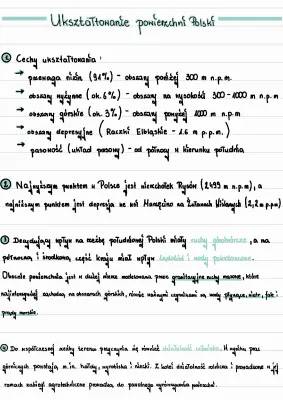 Ukształtowanie powierzchni Polski
① Cechy ukształtowania:
→ przewaga nizin (91%) - obszary poniżej 300 m n.p.m.
→ obszary wyżynne (ok. 6%) - obszary na wysokości 300 - 1000 m n.p.m.
→ obszary górskie (ok. 3%) - obszary powyżej 1000 m n.p.m
→ obszary depresyjne (Raczki Elbląskie - 1.6 m p.p.m.)
→ pasowość (układ pasowy) - od północy w kierunku południa
② Najwyższym punktem w Polsce jest wierzchołek Rysów (2499 m n.p.m), a
najniższym punktem jest depresja we wsi Marzęcino na Żuławach Wiślanych (2,2 m p.p.m)
③ Decydujący wpływ na rzeźbę południowej Polski miały ruchy górotwórcze, a na
północną i środkową część kraju miał wpływ lądolód i wody
Obecnie powierzchnia jest w dużej mierze modelowana przez grawitacyjne ruchy masowe, które
zachodzą na obszarach górskich, również ważnymi czynnikami są wody płynące, wiatr, fale i
prądy morskie.
④ Do współczesnej rzeźby terenu przyczynia się również działalność człowieka. W wyniku prac
górniczych powstają m.in. hałdy, wyrobiska i niecki. Z kolei działalność rolnicza i prowadzone w jej
ramach zabiegi agrotechniczne prowadzą do powolnego wyrównywania powierzchni.